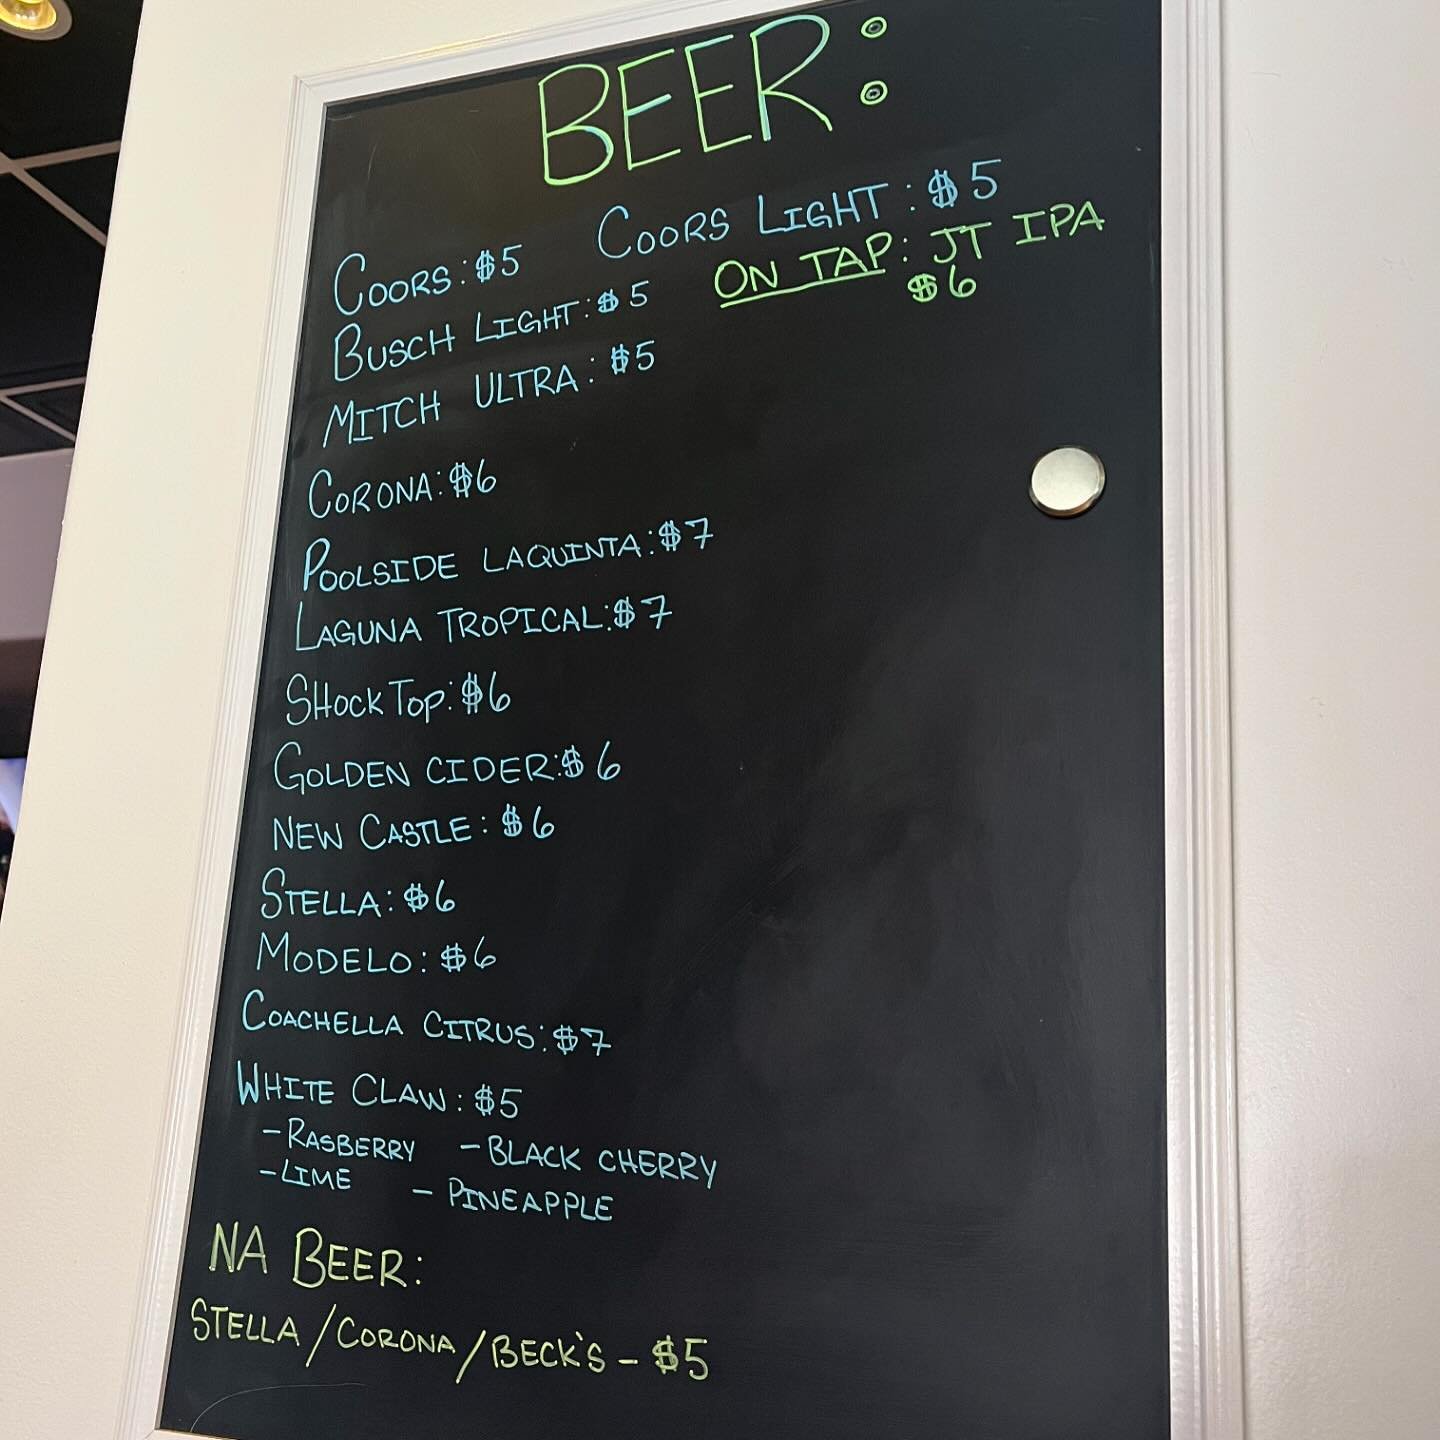 BEER:
COORS: $5 COORS LIGHT: $5
BUSCH LIGHT: $5 ON TAP: JT IPA
$6
MITCH ULTRA: $5
CORONA: $6
POOLSIDE LAQUINTA: $7
LAGUNA TROPICAL: $7
SHOCK TOP: $6
GOLDEN CIDER: $6
NEW CASTLE: $6
STELLA: $6
MODELO: $6
COACHELLA CITRUS: $7
WHITE CLAW: $5
-RASBERRY -BLACK CHERRY
-LIME - PINEAPPLE
NA BEER:
STELLA/CORONA/BECK'S - $5